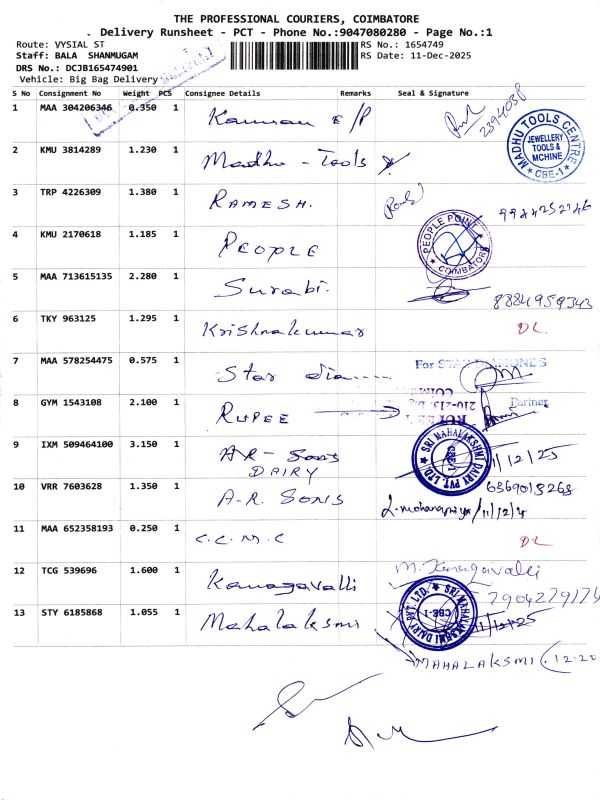 THE PROFESSIONAL COURIERS, COIMBATORE
. Delivery Runsheet - PCT - Phone No.:9047080280 - Page No.:1
Route: VYSIAL ST
RS No.: 1654749
Staff: BALA SHANMUGAM
RS Date: 11-Dec-2025
DRS No.: DCJB165474901
Vehicle: Big Bag Delivery
S No Consignment No Weight PCS Consignee Details Remarks Seal & Signature
1 MAA 304206346 0.350 1 Kannan E/P 2394038
MADHU TOOLS CENTRE
JEWELLERY TOOLS & MCHINE
* CBE-1 *
2 KMU 3814289 1.230 1 Madhu - Tools
3 TRP 4226309 1.380 1 RAMESH. 9944252146
4 KMU 2170618 1.185 1 PEOPLE
PEOPLE POINT
* COIMBATORE *
5 MAA 713615135 2.280 1 Surabi. 8884959343
6 TKY 963125 1.295 1 Krishnakumar DL
7 MAA 578254475 0.575 1 Star dia
For STAR DIAMONDS
Partner
8 GYM 1543108 2.100 1 RUPEE
9 IXM 509464100 3.150 1 AR - Sons
DAIRY
SRI MAHALAKSHMI DAIRY PVT. LTD.
CBE-1
11/12/25
10 VRR 7603628 1.350 1 A-R. SONS 6369015268
11 MAA 652358193 0.250 1 C.C.M.C DL
12 TCG 539696 1.600 1 Kanagavalli M. Kanagavalli
13 STY 6185868 1.055 1 Mahalaksmi
SRI MAHALAKSHMI DAIRY PVT. LTD.
CBE-1
11/12/25
MAHALAKSMI